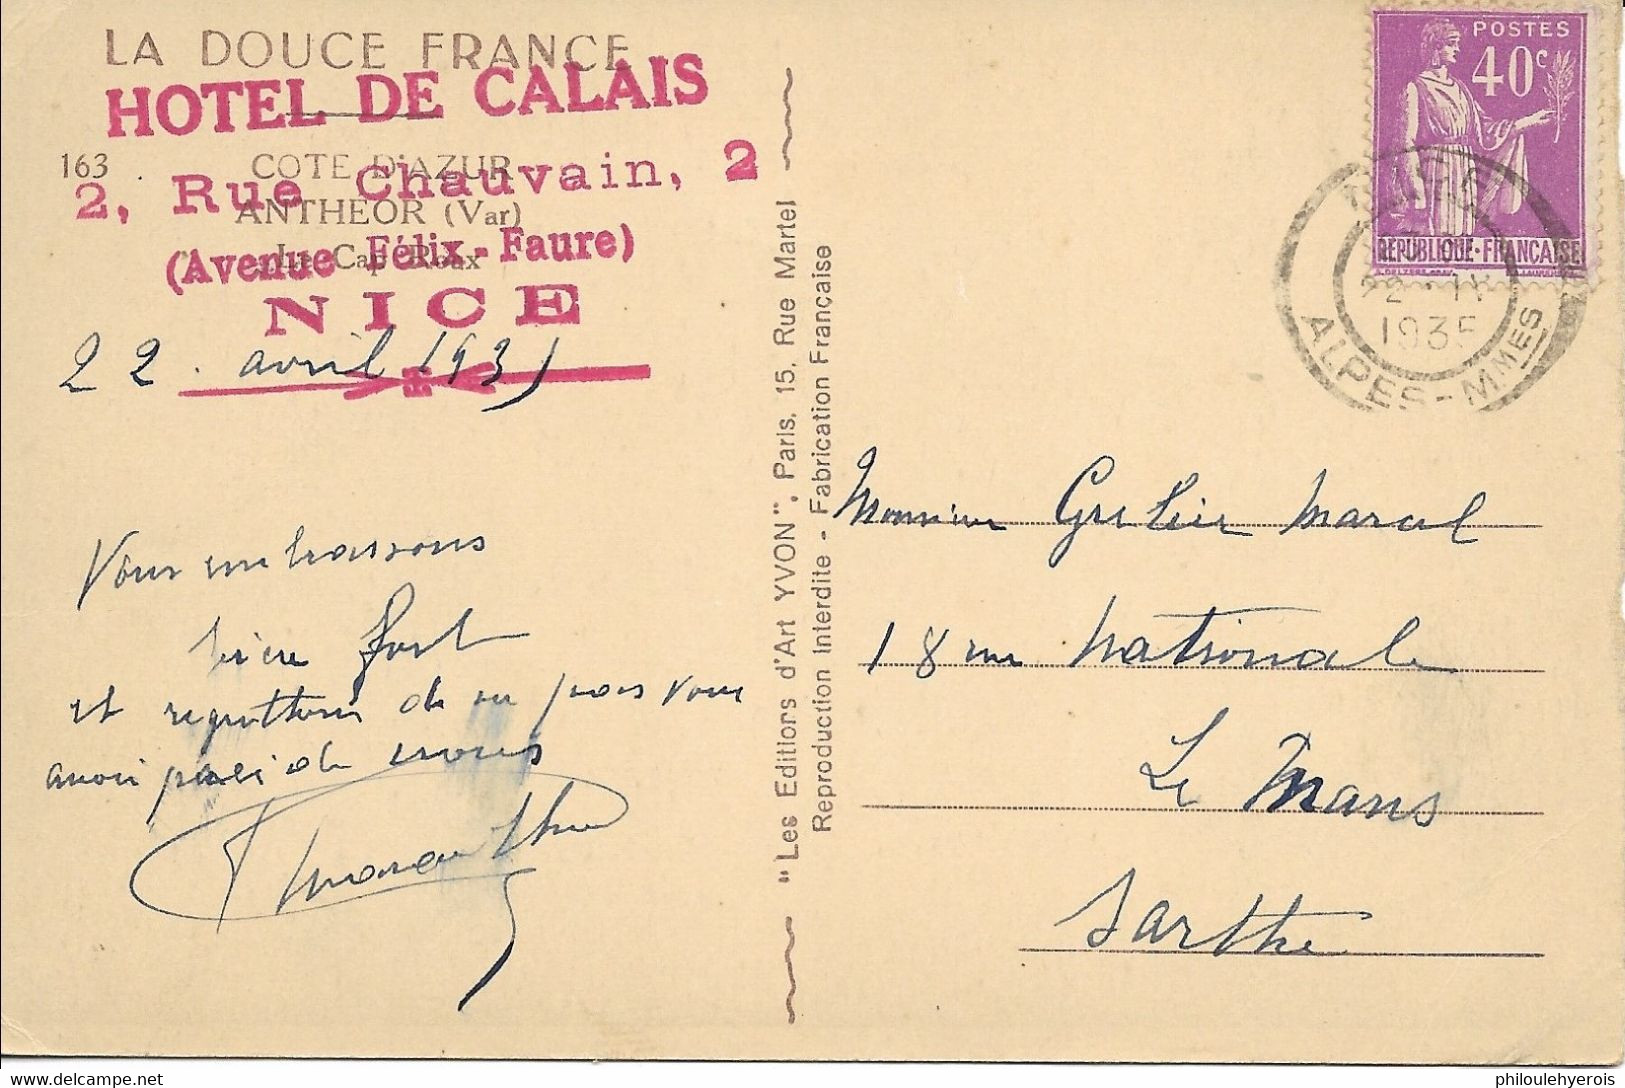 LA DOUCE FRANCE
HOTEL DE CALAIS
163
COTE D'AZUR
2, Rue Chauvain, 2
ANTHEOR (Var)
(Avenue Félix-Faure)
Le Cap Roux
NICE
22 avril 1935
Vous embrassons
bien fort
et regrettons de ne pas vous
avoir près de nous
"Les Editiors d'Art YVON", Paris, 15, Rue Martel
Reproduction Interdite - Fabrication Française
POSTES
40c
REPUBLIQUE·FRANCAISE
22 - IV
1935
ALPES-MMES
Monsieur Marcel
18 rue Nationale
Le Mans
Sarthe
www.delcampe.net
philoulehyerois